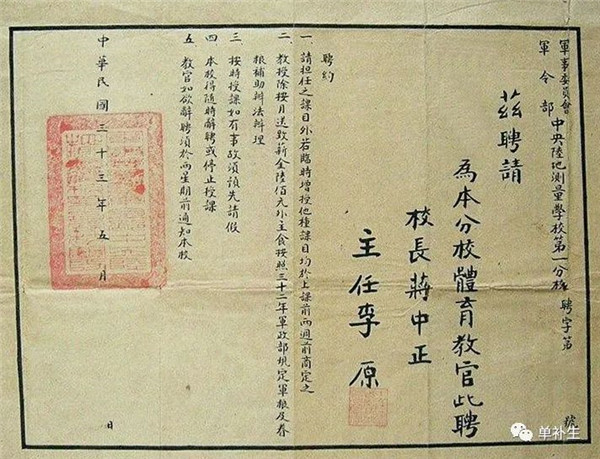 軍事委員會
軍令部
中央陸地測量學校第一分校 聘字第 號
茲聘請
為本分校體育教官此聘
校長蔣中正
主任李原
聘約
一、請担任之課目外若臨時增授他種課目均於上課前兩週前商定之
二、教授除按月送致薪金陸佰元外主食按照三十二年軍政部規定軍糧及眷
糧補助辦法辦理
三、按時授課如有事故須預先請假
四、本校得隨時解聘或停止授課
五、教官如欲辭聘須於兩星期前通知本校
中華民國三十三年五月 日
单补生